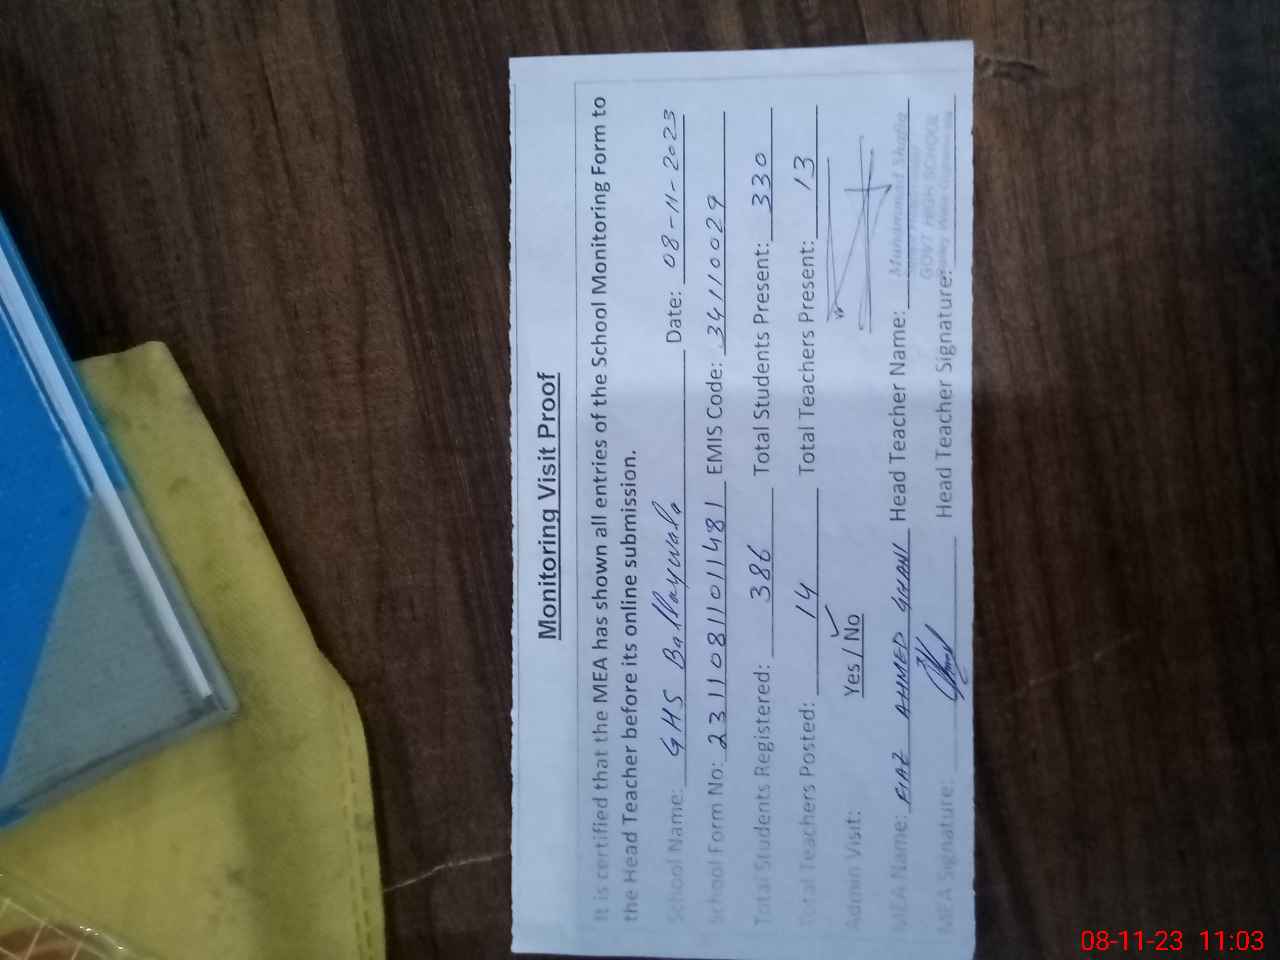 Monitoring Visit Proof
It is certified that the MEA has shown all entries of the School Monitoring Form to
the Head Teacher before its online submission.
School Name: GHS Ballaywala Date: 08-11-2023
School Form No: 23110811011481 EMIS Code: 34110029
Total Students Registered: 386 Total Students Present: 330
Total Teachers Posted: 14 Total Teachers Present: 13
Admin Visit: Yes / No
MEA Name: FIAZ AHMED Head Teacher Name: Muhammad Shafiq
MEA Signature: Head Teacher Signature: GOVT HIGH SCHOOL
08-11-23 11:03